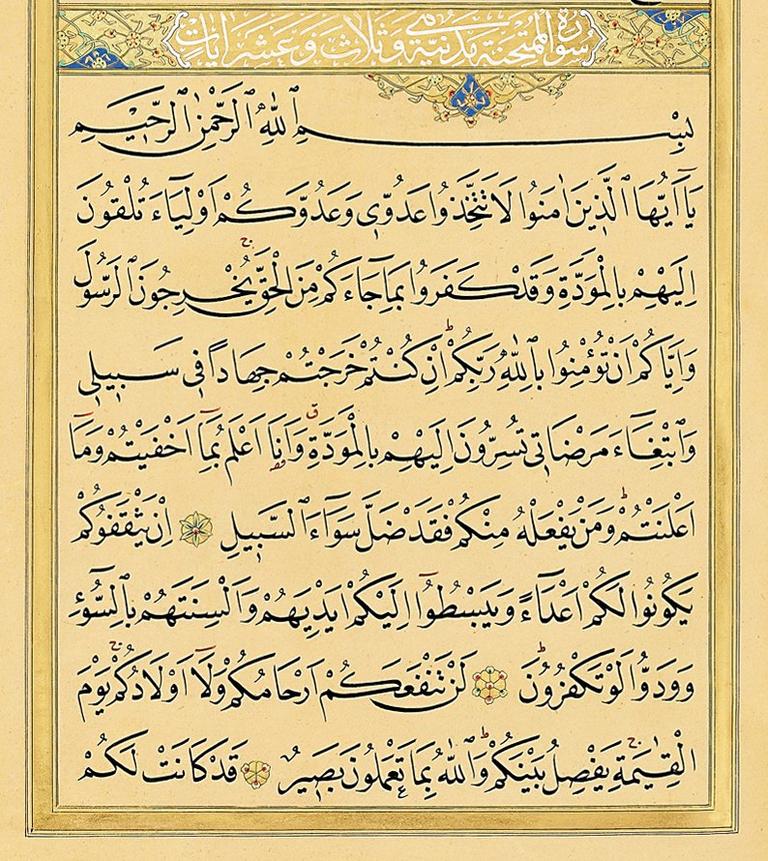 سُورَةُ الْمُمْتَحَنَةِ مَدَنِيَّةٌ وَهِيَ ثَلَاثَ وَعَشَرَ اٰيَاتٍ
بِسْمِ اللّٰهِ الرَّحْمٰنِ الرَّحِيمِ
يَٓا اَيُّهَا الَّذِينَ اٰمَنُوا لَا تَتَّخِذُوا عَدُوِّى وَعَدُوَّكُمْ اَوْلِيَٓاءَ تُلْقُونَ
اِلَيْهِمْ بِالْمَوَدَّةِ وَقَدْ كَفَرُوا بِمَا جَٓاءَكُمْ مِنَ الْحَقِّ يُخْرِجُونَ الرَّسُولَ
وَاِيَّاكُمْ اَنْ تُؤْمِنُوا بِاللّٰهِ رَبِّكُمْ اِنْ كُنْتُمْ خَرَجْتُمْ جِهَادًا فِى سَبِيلِى
وَابْتِغَٓاءَ مَرْضَاتِى تُسِرُّونَ اِلَيْهِمْ بِالْمَوَدَّةِ وَاَنَا اَعْلَمُ بِمَٓا اَخْفَيْتُمْ وَمَٓا
اَعْلَنْتُمْ وَمَنْ يَفْعَلْهُ مِنْكُمْ فَقَدْ ضَلَّ سَوَٓاءَ السَّبِيلِ اِنْ يَثْقَفُوكُمْ
يَكُونُوا لَكُمْ اَعْدَٓاءً وَيَبْسُطُٓوا اِلَيْكُمْ اَيْدِيَهُمْ وَاَلْسِنَتَهُمْ بِالسُّٓوءِ
وَوَدُّوا لَوْ تَكْفُرُونَ لَنْ تَنْفَعَكُمْ اَرْحَامُكُمْ وَلَٓا اَوْلَادُكُمْ يَوْمَ
الْقِيٰمَةِ يَفْصِلُ بَيْنَكُمْ وَاللّٰهُ بِمَا تَعْمَلُونَ بَصِيرٌ قَدْ كَانَتْ لَكُمْ